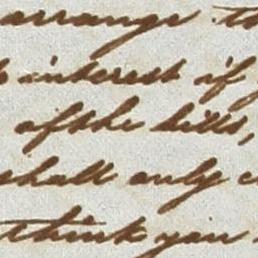 arrange
interest if
of the bills,
shall only
think you